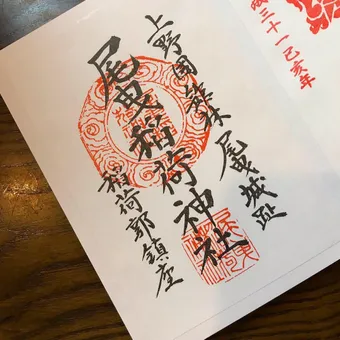 成三十一己亥年
上野国館林 尾曳城趾
尾曳稲荷神社
稲荷郭鎮座